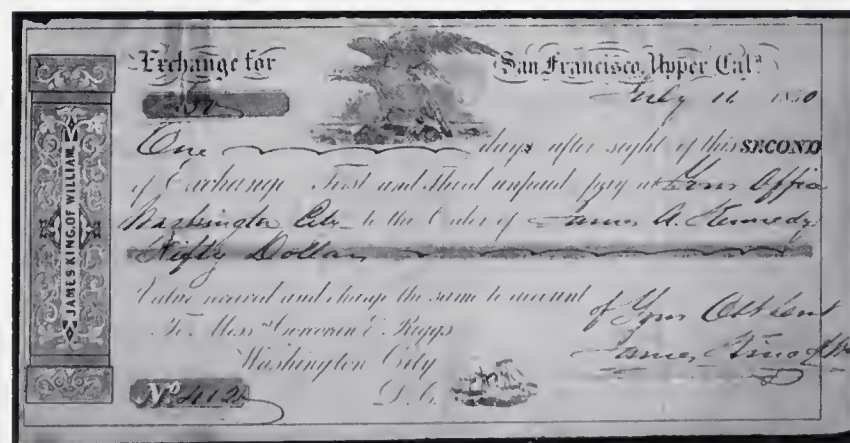 JAMES KING, OF WILLIAM,
Exchange for San Francisco, Upper Cal.ª
July 11 1850
One days after sight of this SECOND
of Exchange First and third unpaid pay at Your Office
Washington City to the Order of James A. Kennedy
Fifty Dollars
Value received and charge the same to account
To Mess.rs Corcoran & Riggs of Your Obt Servt
Washington City James King of Wm
D.C.
Nº